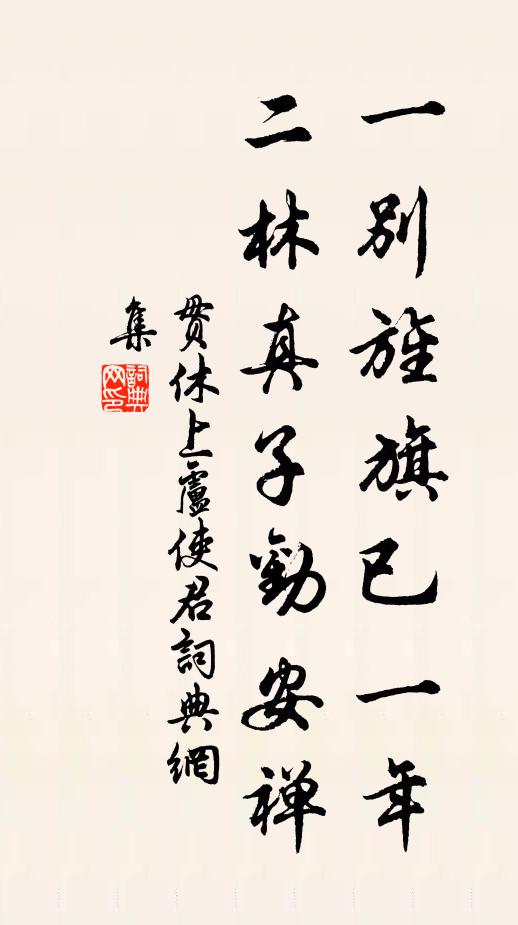 一別旌旗已一年
二林真子勸安禅
貫休上盧使君詞典網
集
詞典
网印